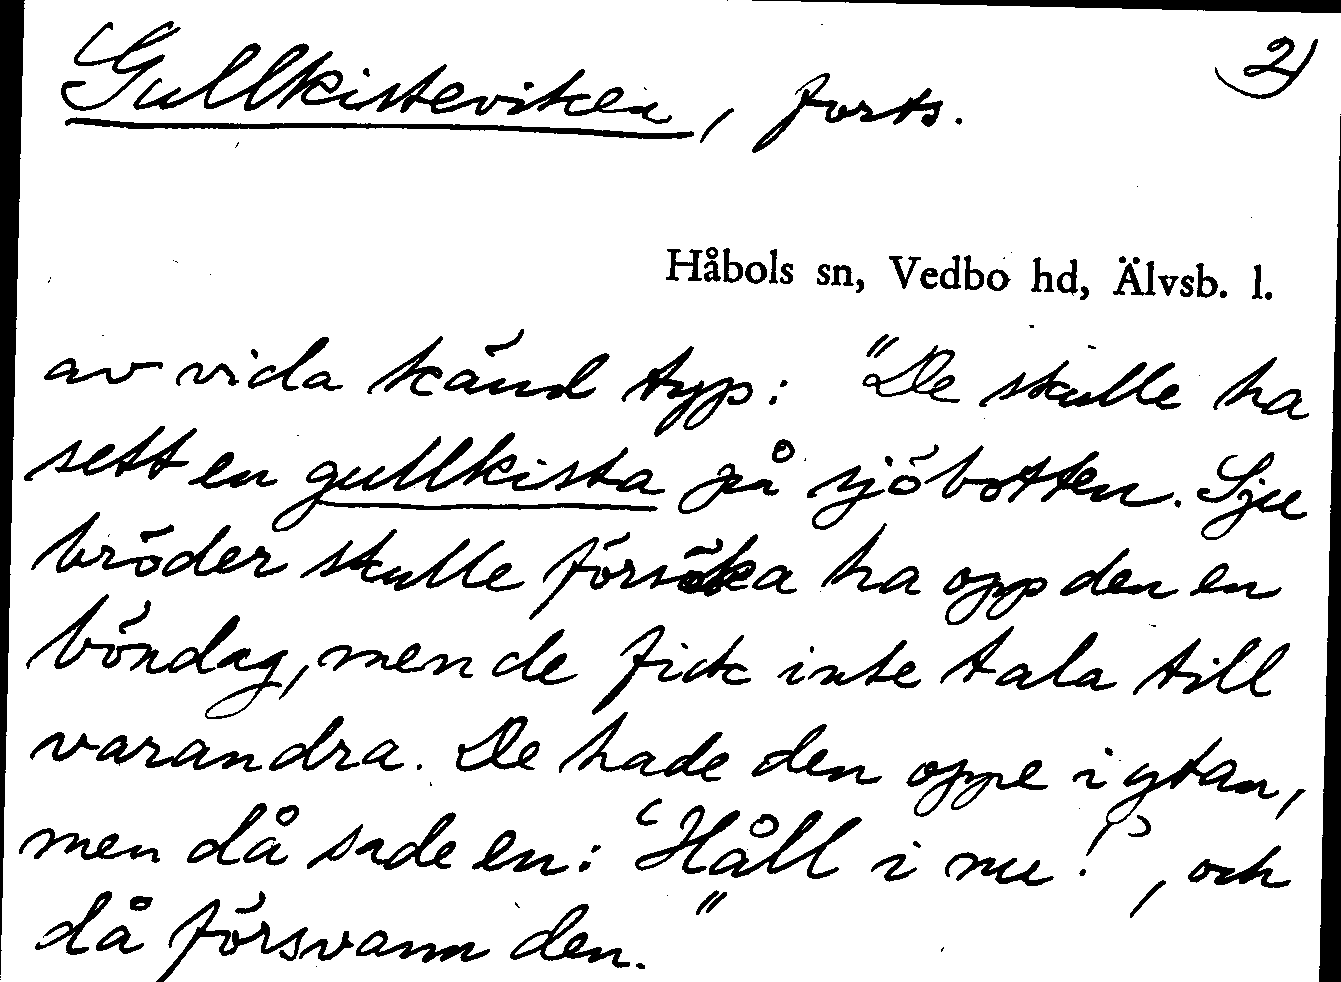 Gullkisteviken, forts.
2)
Håbols sn, Vedbo hd, Älvsb. l.
av vida känd typ: "De skulle ha
sett en gullkista på sjöbotten. Sju
bröder skulle försöka ha opp den en
böndag, men de fick inte tala till
varandra. De hade den oppe i ytan,
men då sade en: 'Håll i nu!', och
då försvann den."